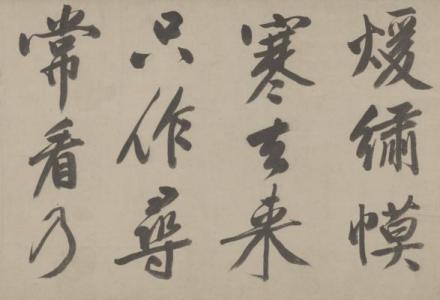 煖繡幙
寒去来
只作尋
常看乃